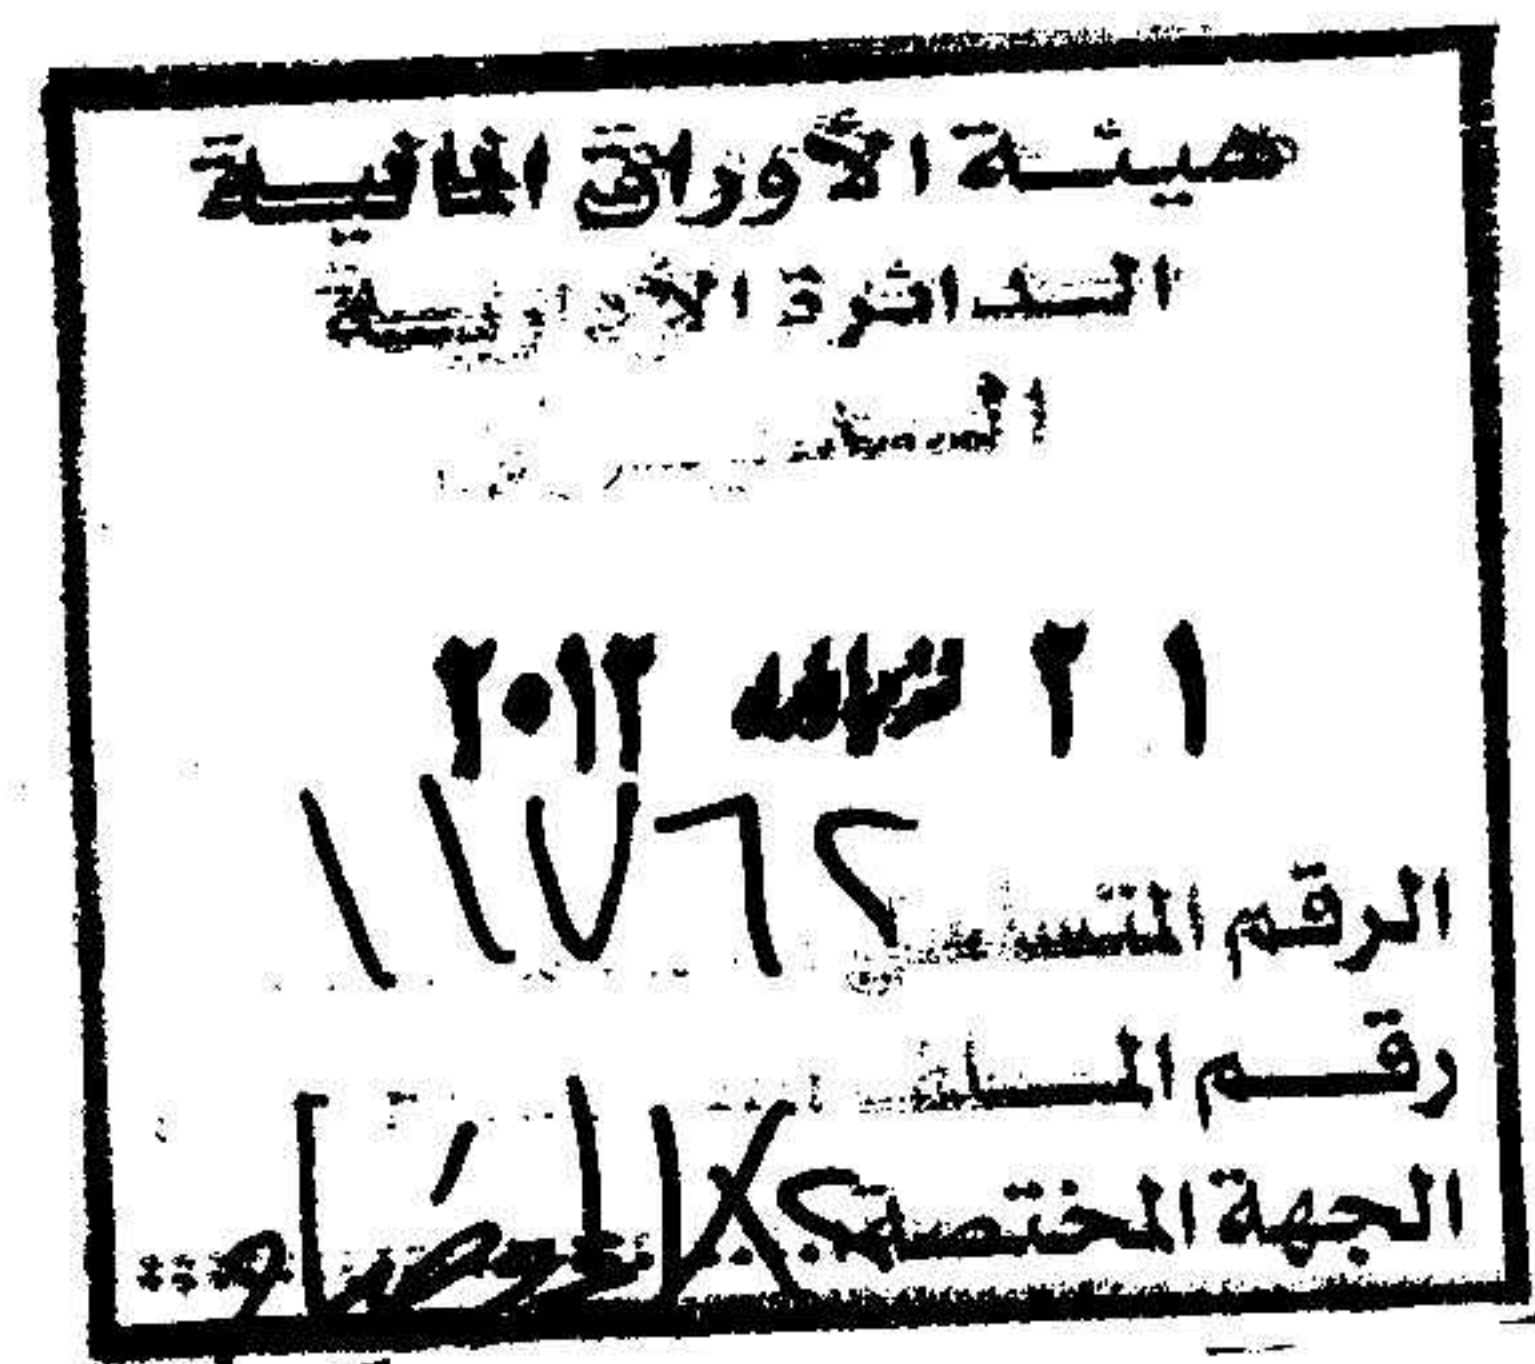 هيئة الأوراق المالية
الدائرة الادارية
٢١ ٢٠١٢
الرقم المتسلسل ١١٧٦٢
رقم الملف
الجهة المختصة